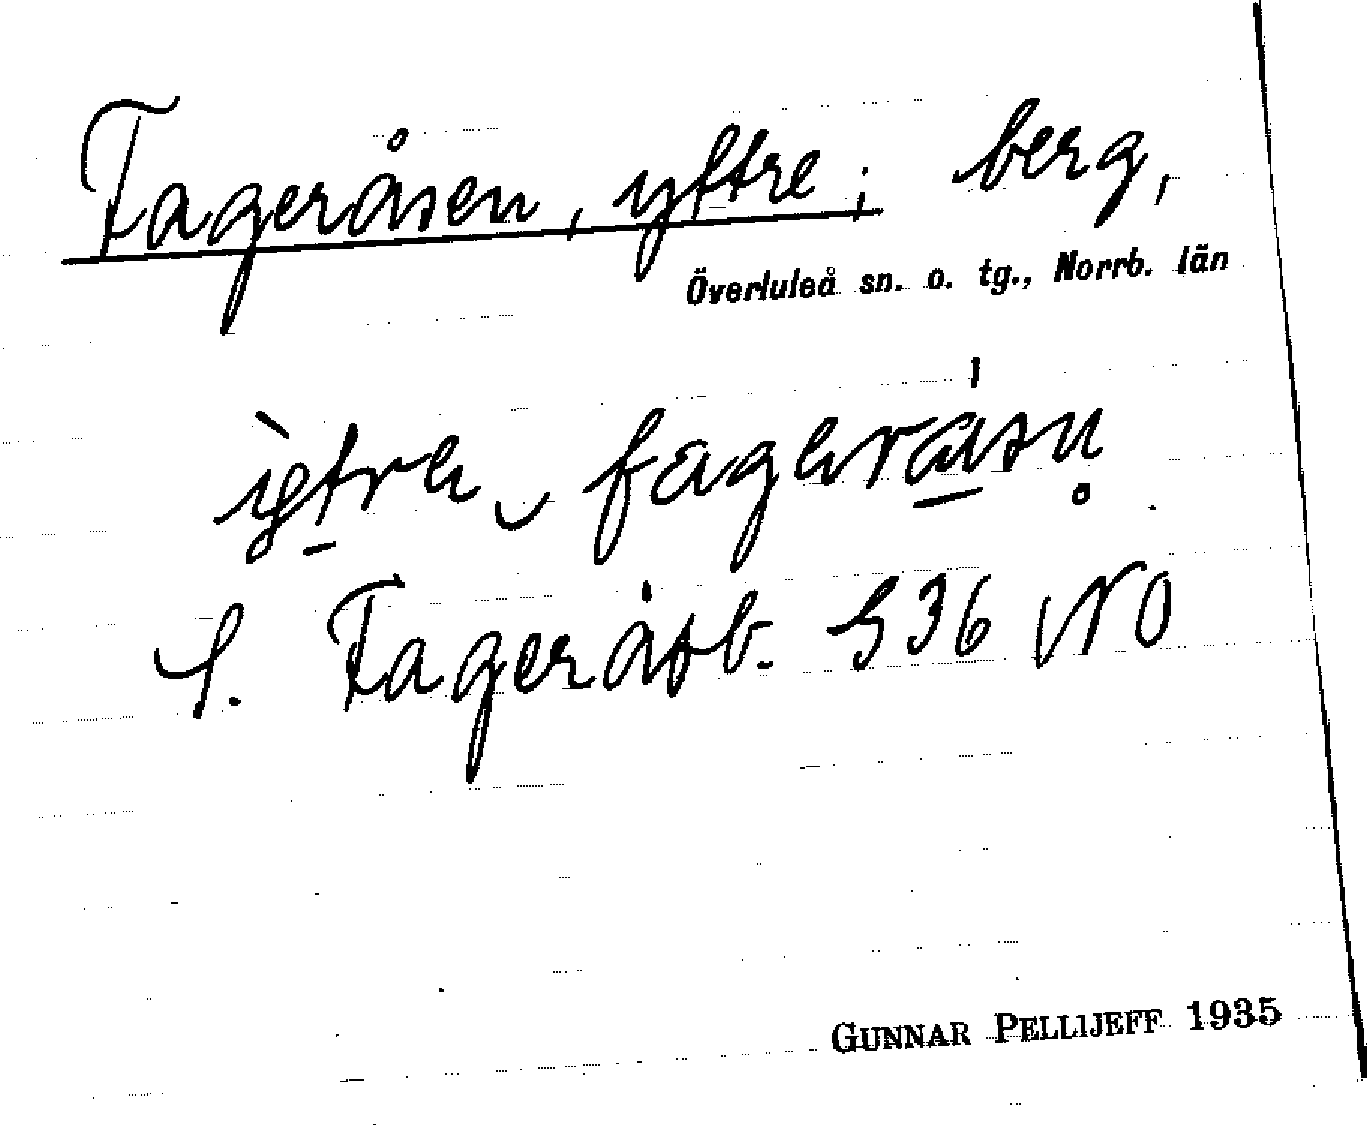 Fageråsen, yttre; berg,
Överluleå sn. o. tg., Norrb. län
fageråsn
f. Fageråsb. 536 NO
GUNNAR PELLIJEFF 1935